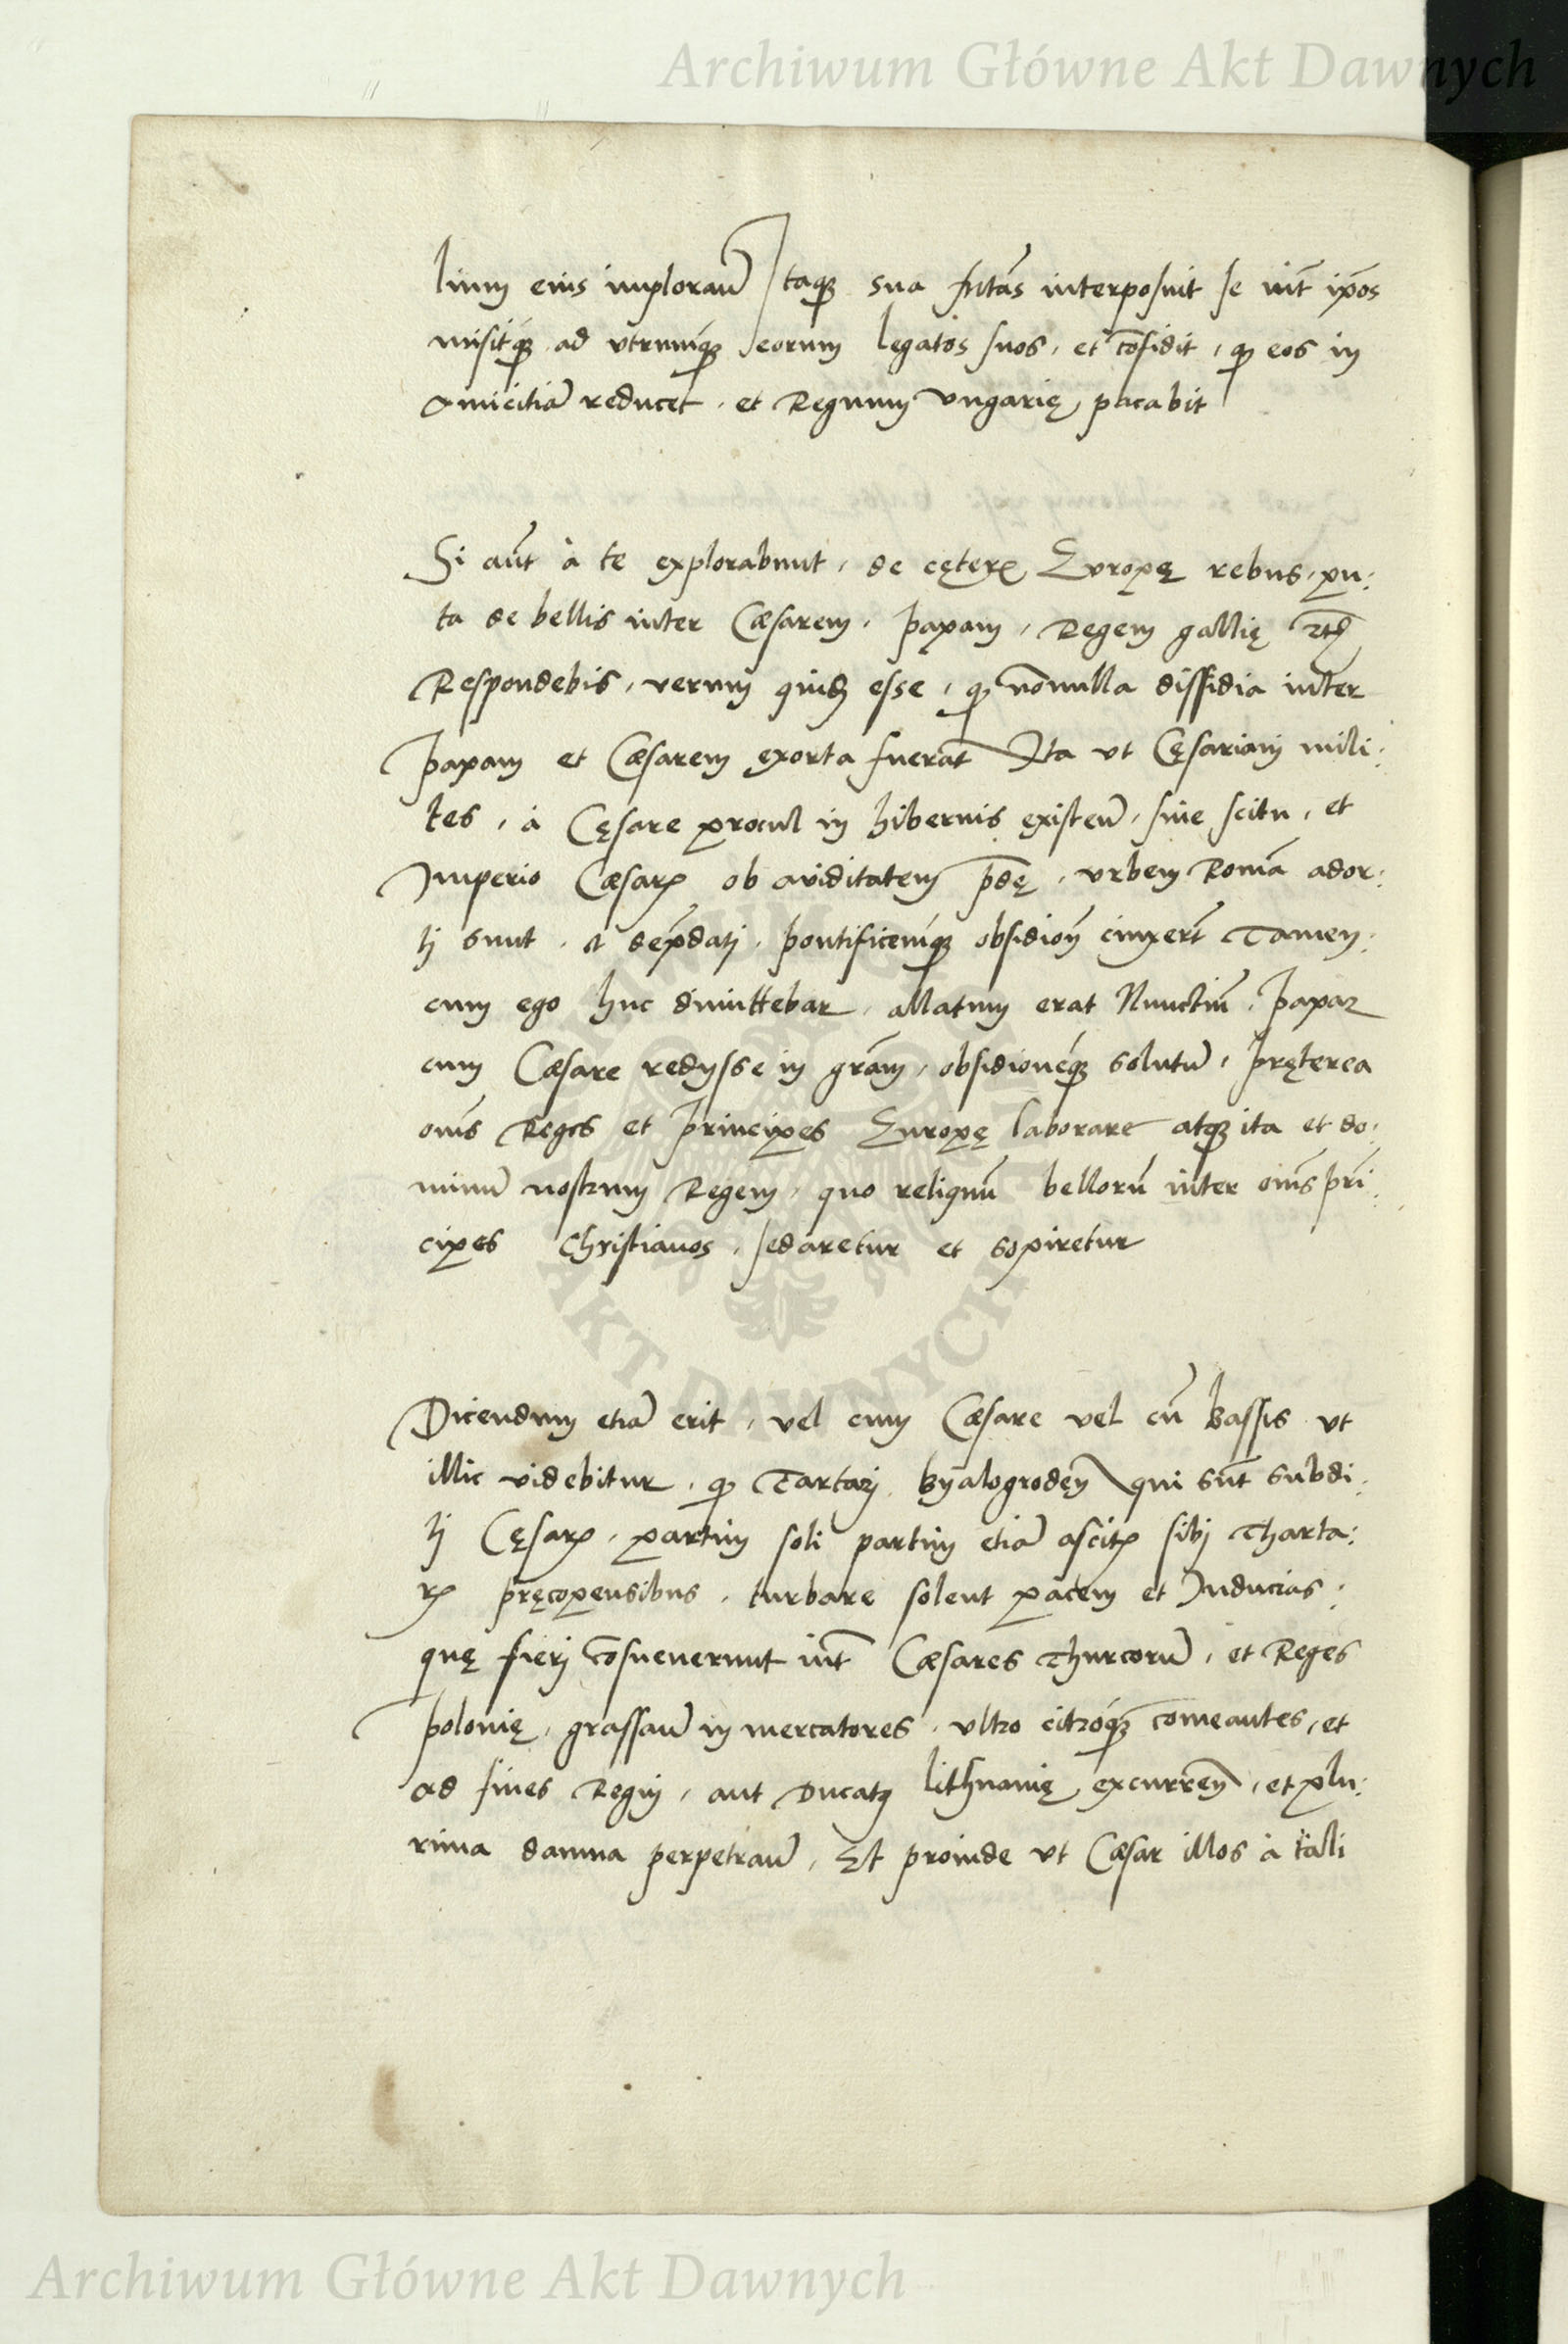 Archiwum Główne Akt Dawnych
lium eius implorau̅ Itaq₃ sua frtas̅ interposuit se int̅ ip̅os
misitq₃ ad utrumq₃ eorum legatos suos, et co̅fidit, q̨ eos in
amicitia̅ reducet, et Regnum Vngarię pacabit
Si au̅t à te explorabunt, de cęteris Europę rebus, pu:
ta de bellis inter Cæsarem, Papam, Regem gallię etc̅
Respondebis, verum quidẽ esse, q̨ no̅nulla dissidia inter
Papam et Cæsarem exorta fuerant Ita ut Cęsariani mili:
tes, à Cęsare procul in hibernis existeñ, sine scitu, et
Imperio Cæsaris ob auiditatem p̅dę, urbem Roma̅ ador:
tj sunt, et dep̅datj, pontificemq₃ obsidion̅ cinxer̅t Tamen
cum ego huc dimittebar, allatum erat Nunctiu̅, Papam
cum Cæsare redijsse in gr̅am, obsidione̅q₃ solutu̅, pręterea
om̅s Reges et Principes Europę laborare atq₃ ita et do:
minu̅ nostrum Regem, quo reliquu̅ belloru̅ inter om̅s pri̅
cipes Christianos, sedaretur et sopiretur
Dicendum etia̅ erit, vel cum Cæsare vel cu̅ Bassis ut
illic videbitur, q̨ Tartarj Byalogroden̅ qui su̅t subdi:
tj Cęsaris, partim soli partim etia̅ ascitis sibj Tharta:
ris pręcopensibus, turbare solent pacem et Inducias:
quę fierj co̅sueuerunt int̅ Cæsares Thurcoru̅, et Reges
Polonię, grassan̅ in mercatores, ultro citroq₃ comeantes, et
ad fines Regni, aut Ducatus lithuanię excurren̅, et plu:
rima damna perpetran̅, Et proinde ut Cæsar illos à tali
AKT DAWNYCH
Archiwum Główne Akt Dawnych